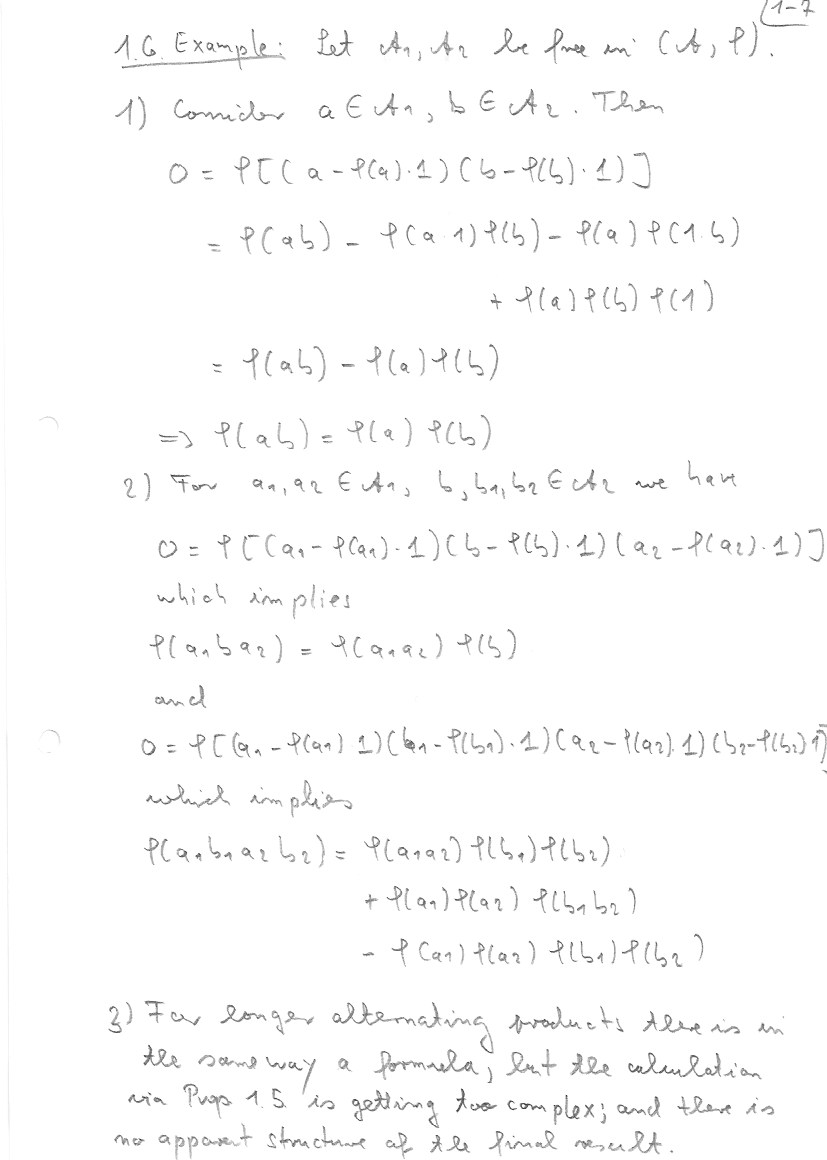 1-7
1.6. Example: Let 𝒜₁, 𝒜₂ be free in (𝒜, φ).
1) Consider a ∈ 𝒜₁, b ∈ 𝒜₂. Then
0 = φ[(a - φ(a)·1)(b - φ(b)·1)]
= φ(ab) - φ(a·1)φ(b) - φ(a)φ(1·b)
+ φ(a)φ(b)φ(1)
= φ(ab) - φ(a)φ(b)
=> φ(ab) = φ(a) φ(b)
2) For a₁, a₂ ∈ 𝒜₁, b, b₁, b₂ ∈ 𝒜₂ we have
0 = φ[(a₁ - φ(a₁)·1)(b - φ(b)·1)(a₂ - φ(a₂)·1)]
which implies
φ(a₁ba₂) = φ(a₁a₂) φ(b)
and
0 = φ[(a₁ - φ(a₁) 1)(b₁ - φ(b₁)·1)(a₂ - φ(a₂)·1)(b₂ - φ(b₂)1)]
which implies
φ(a₁b₁a₂b₂) = φ(a₁a₂) φ(b₁) φ(b₂)
+ φ(a₁) φ(a₂) φ(b₁b₂)
- φ(a₁) φ(a₂) φ(b₁) φ(b₂)
3) For longer alternating products there is in
the same way a formula, but the calculation
via Prop 1.5. is getting too complex; and there is
no apparent structure of the final result.